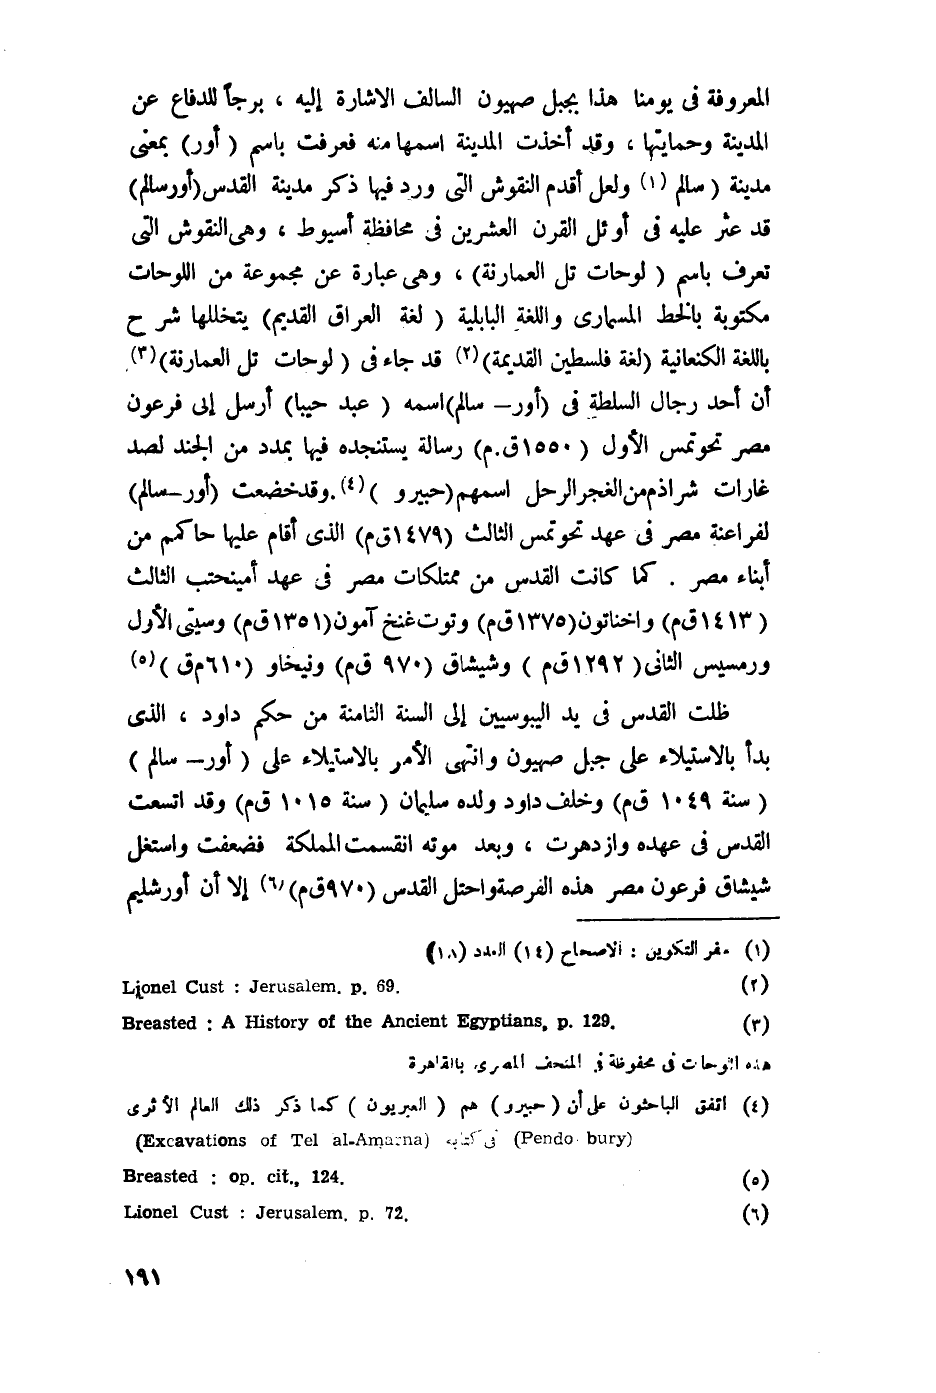 المعروفة فى يومنا هذا بجبل صهيون السالف الاشارة إليه ، برجاً للدفاع عن
المدينة وحمايتها ، وقد أخذت المدينة اسمها منه فعرفت باسم ( أور) بمعنى
مدينة ( سالم (١) ولعل أقدم النقوش التى ورد فيها ذكر مدينة القدس(أورسالم)
قد عثر عليه فى أوئل القرن العشرين فى محافظة أسيوط ، وهى النقوش التى
تعرف باسم ( لوحات تل العمارنة) ، وهى عبارة عن مجموعة من اللوحات
مكتوبة بالخط المسمارى واللغة البابلية ( لغة العراق القديم) يتخللها شرح
باللغة الكنعانية (لغة فلسطين القديمة)(٢) قد جاء فى ( لوحات تل العمارنة)(٣).
أن أحد رجال السلطة فى (أور– سالم)اسمه ( عبد حيبا) أرسل إلى فرعون
مصر تحوتمس الأول ( ١٥٥٠ق.م) رسالة يستنجده فيها بمدد من الجند لصد
غارات شراذم من الغجر الرحل اسمهم(حبيرو )(٤).وقدخضعت (أور–سالم)
لفراعنة مصر فى عهد تحوتمس الثالث (١٤٧٩ق م) الذى أقام عليها حاكمم من
أبناء مصر . كما كانت القدس من ممتلكات مصر فى عهد أمينحتب الثالث
( ١٤١٣ق م) واخناتون(١٣٧٥ق م) وتوت غنخ آمون(١٣٥١ق م) وسيتى الأول
ورمسيس الثانى( ١٢٩٢ق م ) وشيشاق (٩٧٠ ق م) ونيخاو (٦١٠م ق )(٥)
ظلت القدس فى يد اليبوسيين إلى السنة الثامنة من حكم داود ، الذى
بدأ بالاستيلاء على جبل صهيون وانتهى الأمر بالاستيلاء على ( أور– سالم )
( سنة ١٠٤٩ ق م) وخلف داود ولده سليمان ( سنة ١٠١٥ ق م) وقد اتسعت
القدس فى عهده وازدهرت ، وبعد موته انقسمت المملكة فضعفت واستغل
شيشاق فرعون مصر هذه الفرصةواحتل القدس (٩٧٠ق م)(٦) إلا أن أورشليم
(١) سفر التكوين : الاصحاح (١٤) العدد (١٨)
(٢) Lionel Cust : Jerusalem. p. 69.
(٣) Breasted : A History of the Ancient Egyptians, p. 129.
هذه اللوحات فى محفوظة فى المتحف المصرى بالقاهرة
(٤) اتفق الباحثون على أن (حبيرو) هم ( العبريون ) كما ذكر ذلك العالم الأثرى
(Pendo bury) فى كتابه (Excavations of Tel al-Amarna)
(٥) Breasted : op. cit., 124.
(٦) Lionel Cust : Jerusalem. p. 72.
١٩١